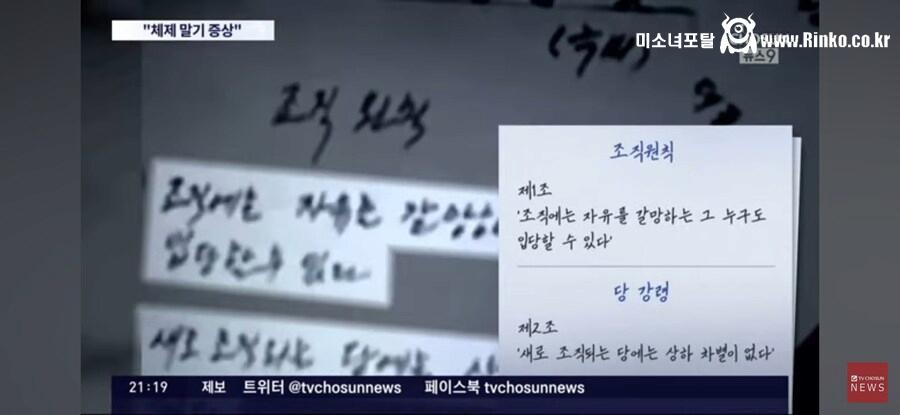 "체제 말기 증상"
미소녀포탈 www.Rinko.co.kr
뉴스9
조직 원칙
조직에는 자유를 갈망하
입당할 수 있다
새로 조직되는 당에는 상
조직원칙
제1조
'조직에는 자유를 갈망하는 그 누구도
입당할 수 있다'
당 강령
제2조
'새로 조직되는 당에는 상하 차별이 없다'
21:19 제보 트위터 @tvchosunnews 페이스북 tvchosunnews
TV CHOSUN
NEWS